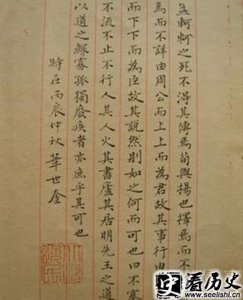 孟軻軻之死不得其傳焉荀與揚也擇焉而不
焉而不詳由周公而上上而為君故其事行由
而下下而為臣故其說長則如之何而可也曰不塞
不流不止不行人其人火其書廬其居明先王之道
以道之鰥寡孤獨廢疾者亦庶乎其可也
時在丙辰仲秋華世奎
看历史
www.seelishi.cn